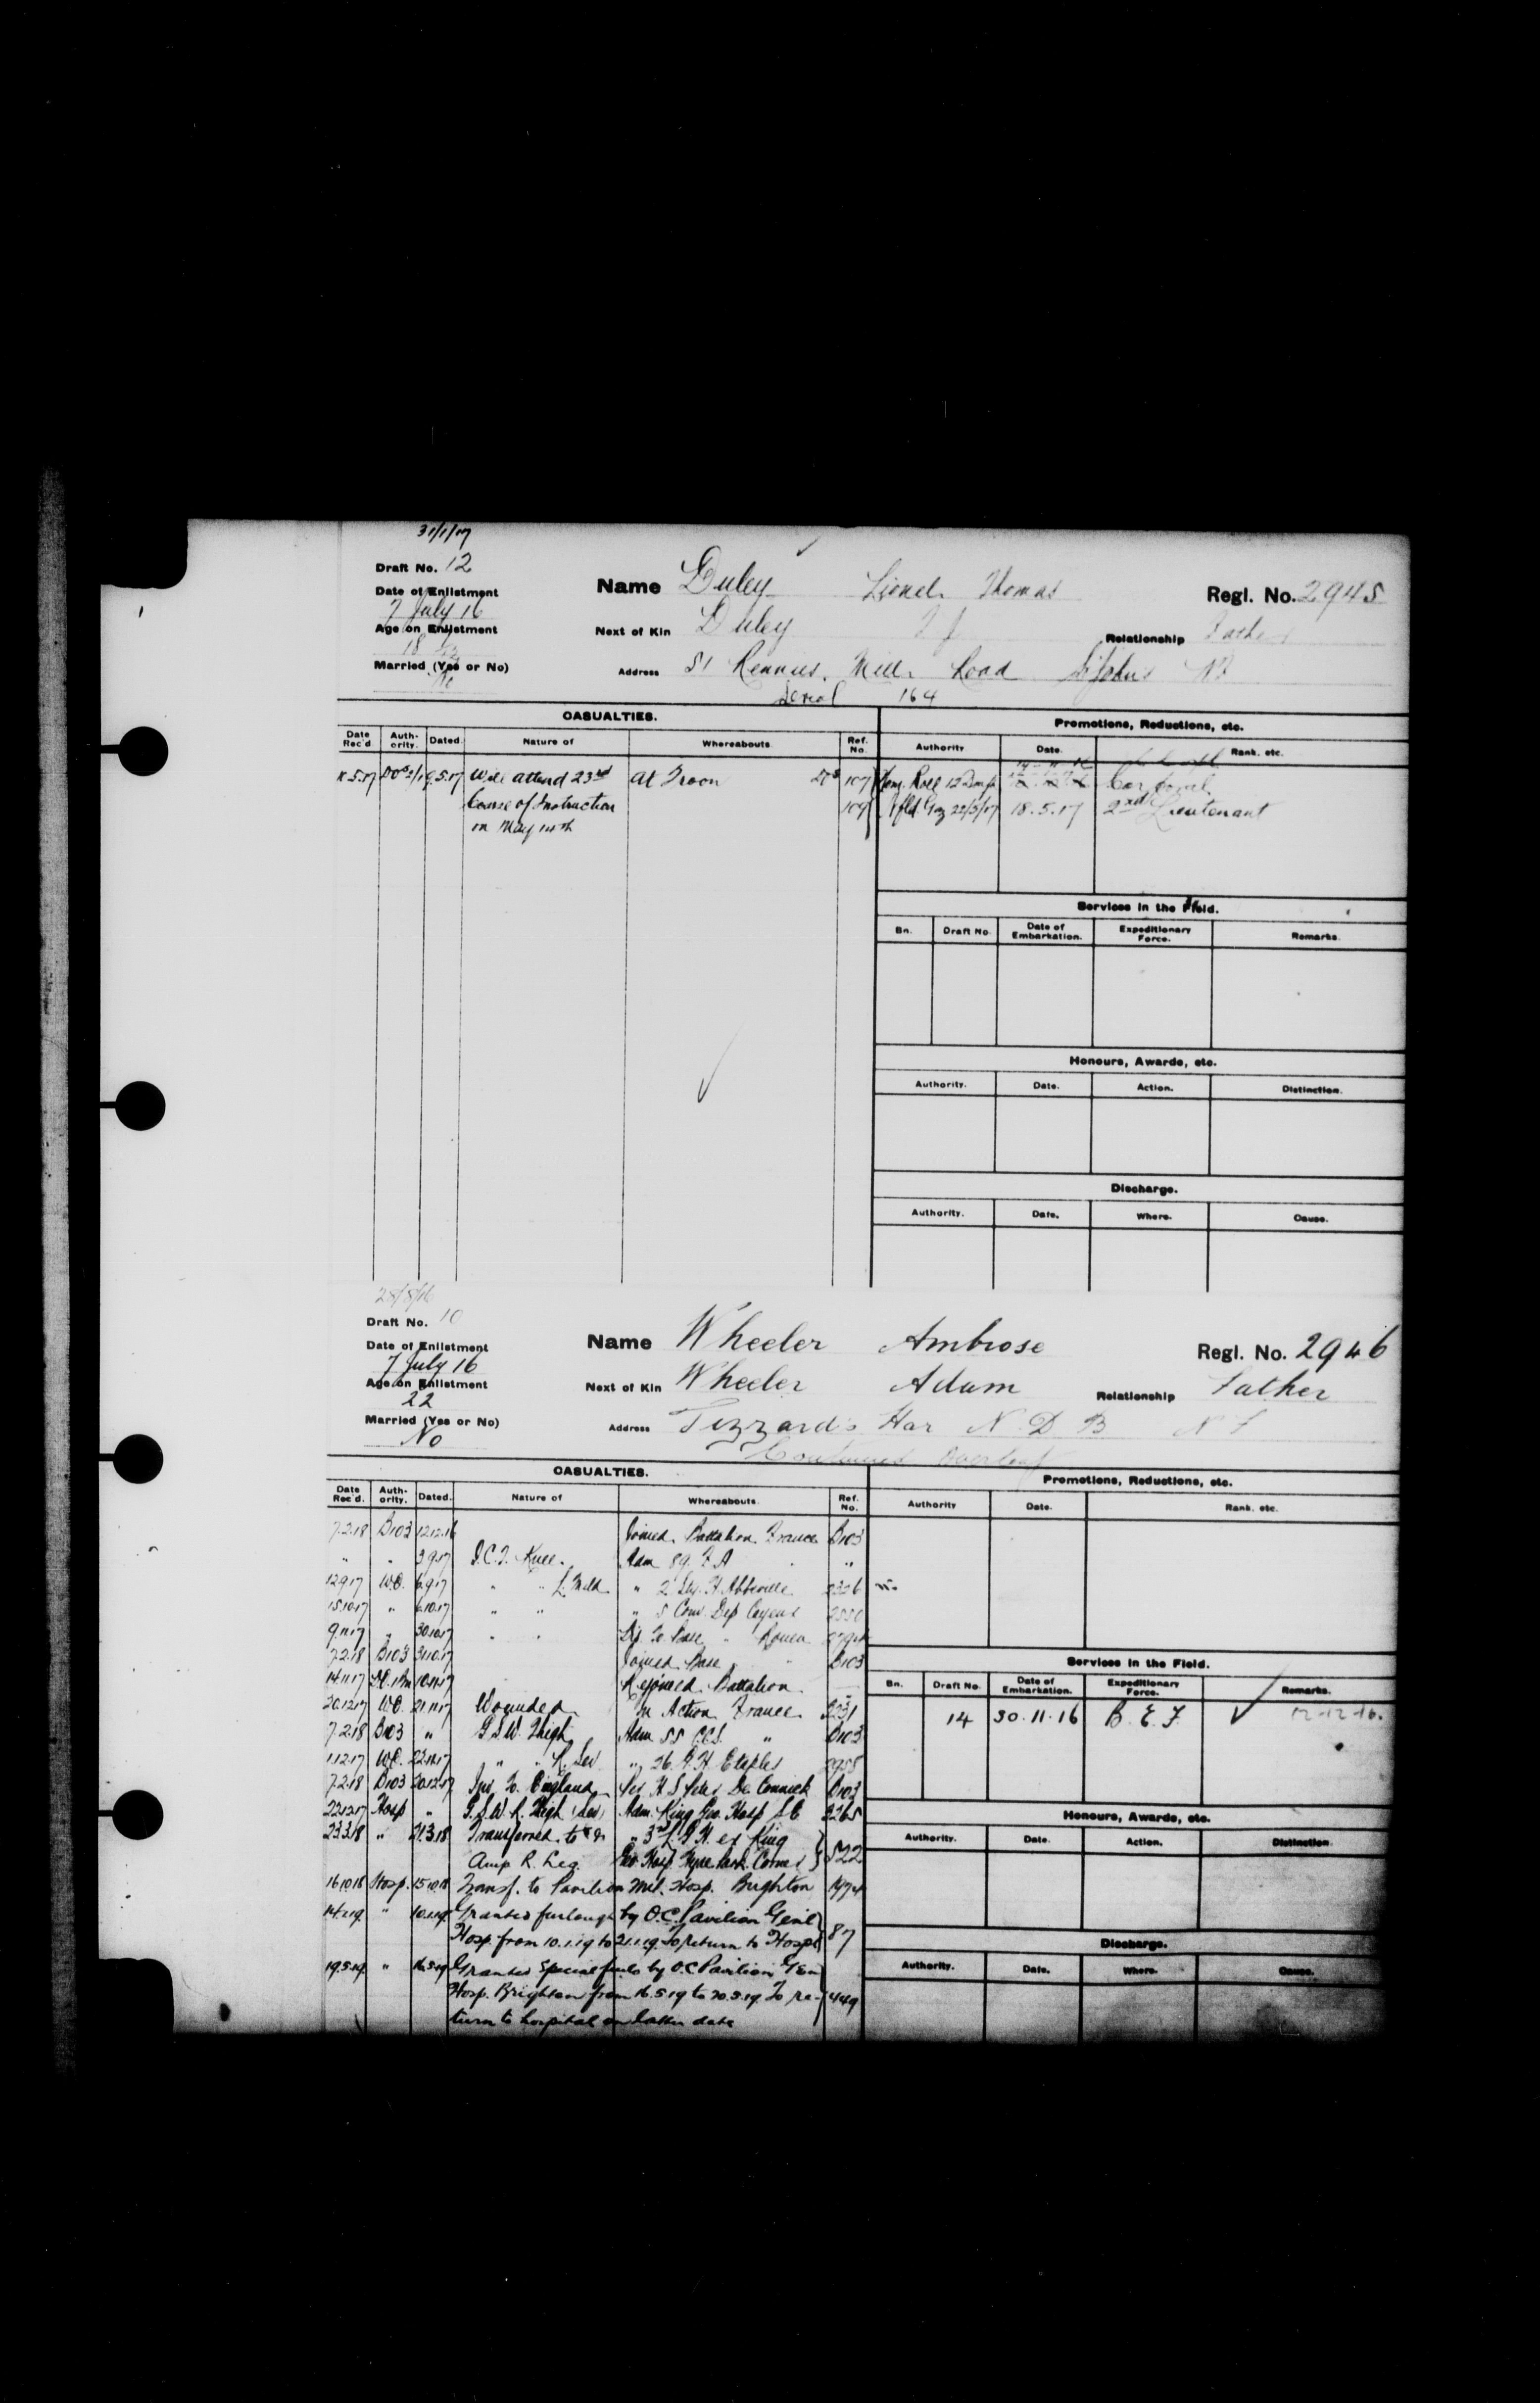 31/1/17
Draft No. 12
Date of Enlistment
7 July 16
Age on Enlistment
18
Married (Yes or No)
No
Name Duley Lionel Thomas
Regl. No. 2945
Next of Kin Duley T J
Relationship Father
Address 51 Rennies Mill Road St John's NF
164
CASUALTIES.
Date Rec'd Auth-ority. Dated. Nature of Whereabouts Ref. No.
9.5.17 Will attend 23rd At Troon 107
Course of Instruction 109
on May 14th
Promotions, Reductions, etc.
Authority Date. Rank. etc.
Corporal
Nfld. Gaz 22/5/17 18.5.17 2nd Lieutenant
Services in the Field.
Bn. Draft No. Date of Embarkation. Expeditionary Force. Remarks.
Honours, Awards, etc.
Authority. Date. Action. Distinction.
Discharge.
Authority. Date. Where. Cause.
Draft No. 10
Date of Enlistment
7 July 16
Age on Enlistment
22
Married (Yes or No)
No
Name Wheeler Ambrose
Regl. No. 2946
Next of Kin Wheeler Adam
Relationship Father
Address Tizzard's Har N. D. B N F
Continued overleaf
CASUALTIES.
Date Rec'd. Auth-ority. Dated. Nature of Whereabouts. Ref. No.
7.2.18 B103 12.12.16 Joined Battalion France B103
" " 3.9.17 I.C.T. Knee. Adm 89 F A "
12.9.17 W.O. 6.9.17 " " L. Mild " 2 Sty. H Abbeville 2326
15.10.17 " 6.10.17 " " " 5 Conv. Dep Cayeux
9.11.17 " 30.10.17 " " Dis to Base " Rouen
7.2.18 B103 31.10.17 Joined Base " " B103
14.11.17 10.11.17 Rejoined Battalion
20.12.17 W.O. 21.11.17 Wounded In Action France 3231
7.2.18 B103 " G.S.W. Thigh Adm 55 CCS. " B103
1.12.17 W.O. 22.11.17 " " R. Sev " 26 G H Etaples 2955
7.2.18 B103 20.12.17 Inv to England Per H S Peter De Connick B103
22.12.17 Hosp " G.S.W. R. Thigh (Sev) Adm King Geo. Hosp S.E 3265
23.3.18 " 21.3.18 Transferred to " 3rd L.G.H. ex King
Amp R. Leg. Geo Hosp Hyde Park Corner 822
16.10.18 Hosp. 15.10.18 Transf. to Pavilion Mil. Hosp. Brighton 1474
14.1.19 " 10.1.19 Granted furlough by O.C. Pavilion Genl
Hosp from 10.1.19 to 21.1.19 To return to Hospl 87
19.5.19 " 16.5.19 Granted Special furlo by O.C Pavilion Gen
Hosp. Brighton from 16.5.19 to 20.5.19 To re- 449
turn to hospital on latter date
Promotions, Reductions, etc.
Authority Date. Rank. etc.
Services in the Field.
Bn. Draft No. Date of Embarkation. Expeditionary Force. Remarks.
14 30.11.16 B. E. F. 12-12-16.
Honours, Awards, etc.
Authority. Date. Action. Distinction.
Discharge.
Authority. Date. Where. Cause.